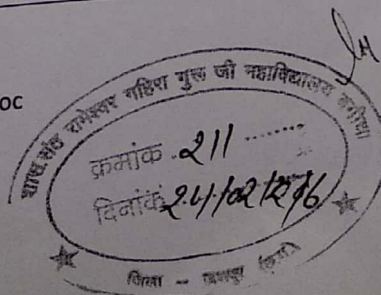 OC
शास. संत रामेश्वर गहिरा गुरू जी महाविद्यालय बगीचा
क्रमांक 211
दिनांक 24/02/2016
जिला - जशपुर (छ.ग.)